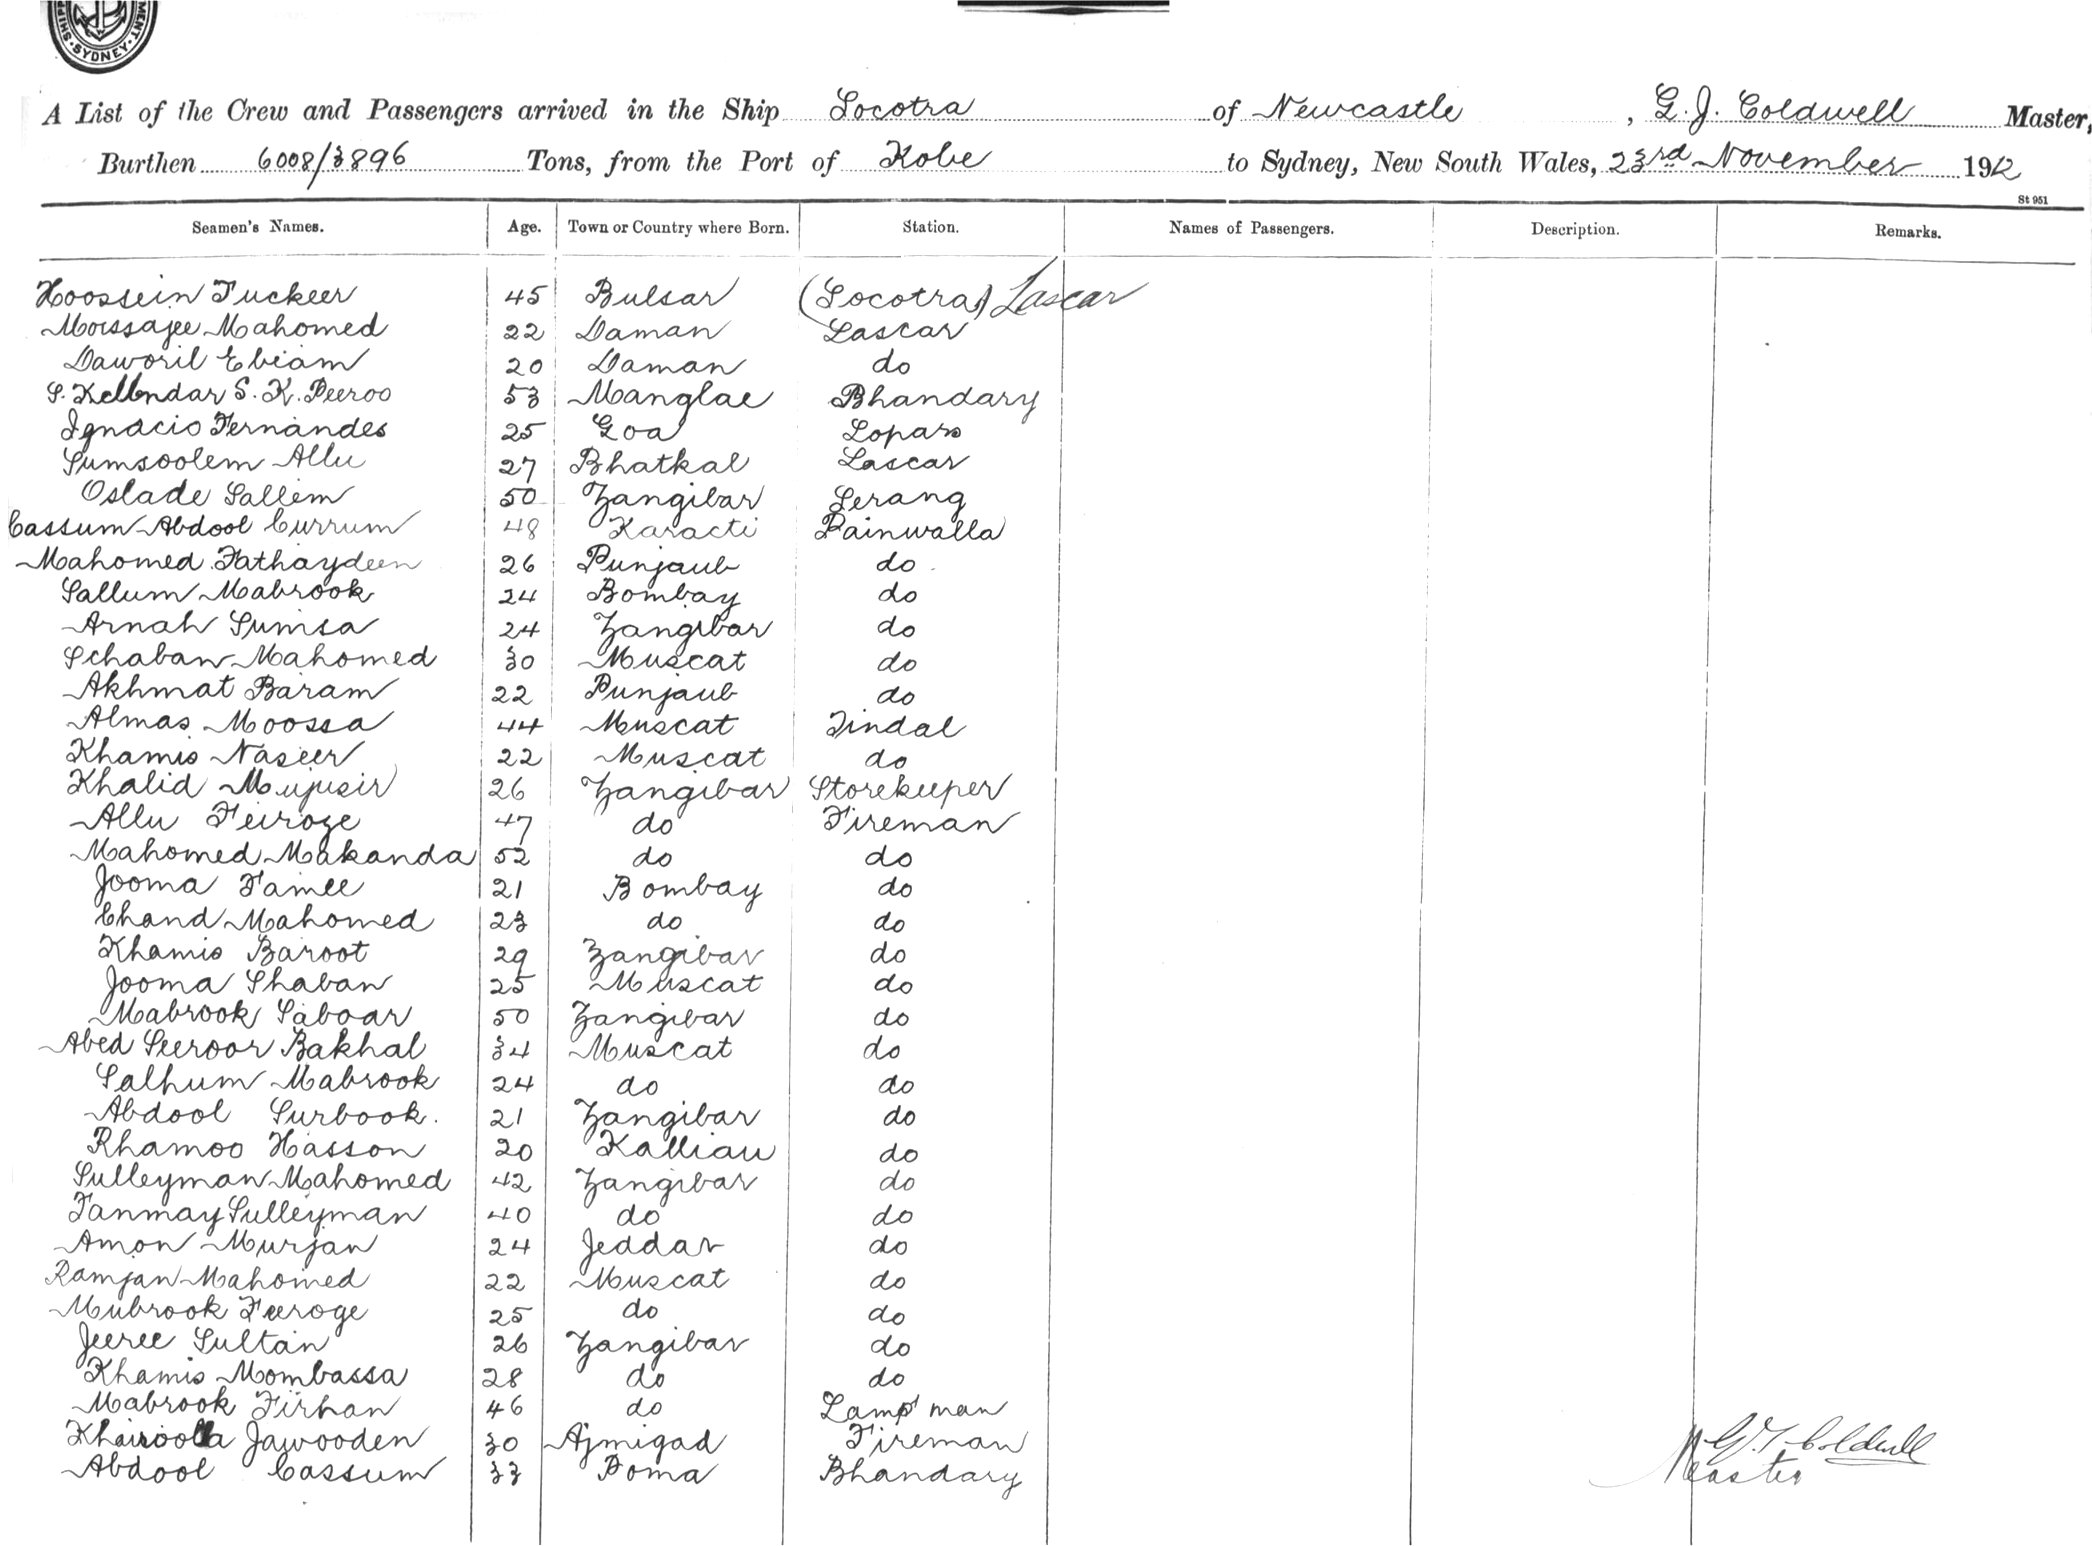 SHIPPING
MENT
SYDNEY
A List of the Crew and Passengers arrived in the Ship Socotra of Newcastle, G. J. Coldwell Master,
Burthen 6008/3896 Tons, from the Port of Kobe to Sydney, New South Wales, 23rd November 1912
St 951
Seamen's Names. Age. Town or Country where Born. Station. Names of Passengers. Description. Remarks.
Hoossein Fuckeer 45 Bulsar (Socotra) Lascar
Moossajee Mahomed 22 Daman Lascar
Daworil Ebiam 20 Daman do
S. Kellendar S. K. Peeroo 53 Manglae Bhandary
Ignacio Fernandes 25 Goa Topass
Sumsoolem Allu 27 Bhatkal Lascar
Oslade Sallem 50 Zangibar Serang
Cassum Abdool Currum 48 Karacti Painwalla
Mahomed Fathaydeen 26 Punjaub do
Sallum Mabrook 24 Bombay do
Arnah Sumsa 24 Zangibar do
Schaban Mahomed 30 Muscat do
Akhmat Baram 22 Punjaub do
Almas Moossa 44 Muscat Tindal
Khamis Naseer 22 Muscat do
Khalid Mujusir 26 Zangibar Storekeeper
Allu Feiroze 47 do Fireman
Mahomed Makanda 52 do do
Jooma Famee 21 Bombay do
Chand Mahomed 23 do do
Khamis Baroot 29 Zangibar do
Jooma Shaban 25 Muscat do
Mabrook Saboar 50 Zangibar do
Abed Seeroor Bakhal 34 Muscat do
Salhum Mabrook 24 do do
Abdool Surbook. 21 Zangibar do
Rhamoo Hasson 20 Kalliau do
Sulleyman Mahomed 42 Zangibar do
Fanmay Sulleyman 40 do do
Amon Murjan 24 Jeddar do
Ramjan Mahomed 22 Muscat do
Mubrook Feeroge 25 do do
Jeeree Sultan 26 Zangibar do
Khamis Mombassa 28 do do
Mabrook Firhan 46 do Lamp man
Khairoolla Jawooden 30 Ajmigad Fireman
Abdool Cassum 33 Poma Bhandary
G. J. Coldwell
Master